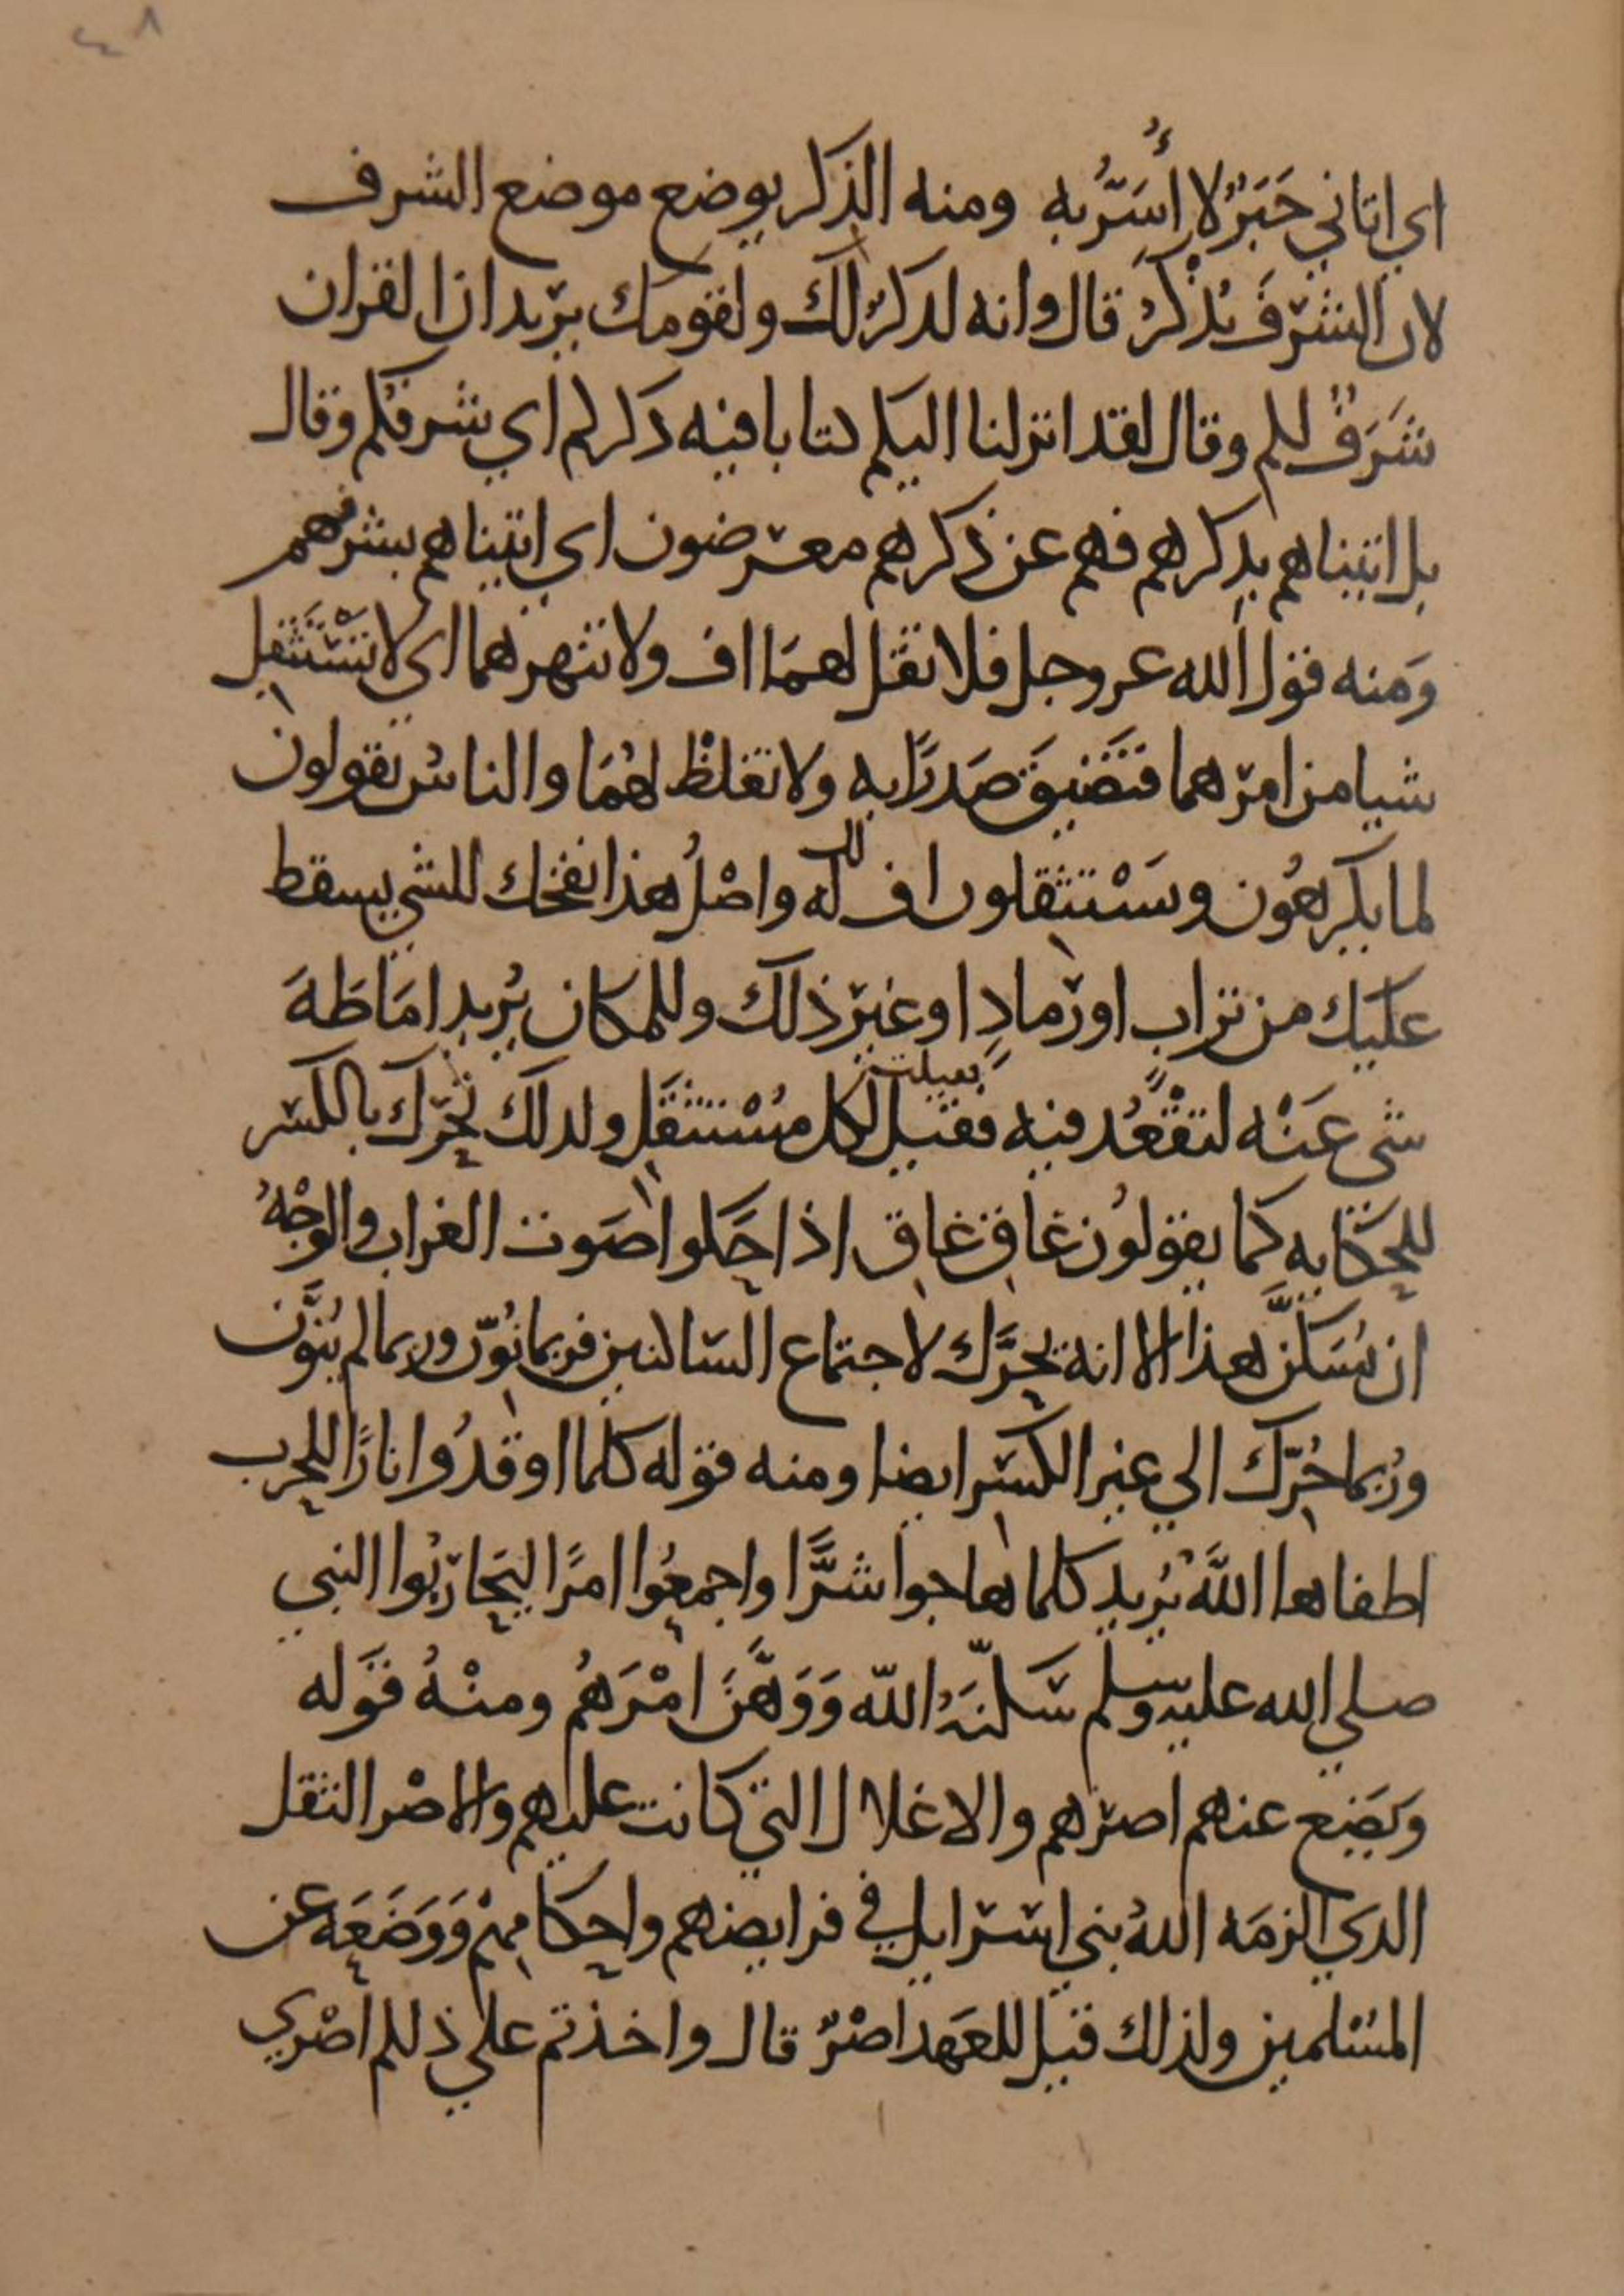 ٤٨
اي اتاني خَبَرٌ لا أُسَرُّ به ومنه الذكر يوضع موضع الشرف
لان الشرَفَ يُذْكَرُ قال وانه لذكرٌ لك ولقومك يريد ان القران
شَرَفٌ لكم وقال لقد انزلنا اليكم كتابا فيه ذكركم اي شرفكم وقال
بل اتيناهم بذكرهم فهم عن ذكرهم معرضون اي اتيناهم بشرفهم
وَمنه قول الله عز وجل فلا تقل لهمَا اف ولا تنهرهما اي لا تَسْتَثقِل
شيا من امرهما فتَضيقَ صَدرًا به ولا تغلظْ لهُمَا والناسُ يقولون
لما يكرهُون ويَسْتثقلون اف له واصْلُ هذا نفخك للشي يسقط
عليك من تراب او رَمادٍ او غير ذلك وللمكان يُريد امَاطَةَ
شى عَنْه لتقْعُد فيه فقيل لكل مُسْتثقَل ولذلك تحرّك بالكسر
للحكَايه كما يقولُون غاقِ غاقِ اذا حَكَوا صَوت الغراب والوجْهُ
ان يُسَكَّن هذا الا انه يحَرَّك لاجتماع الساكنين فربما نُوّن وربما لم يُنَوَّن
ورُبما حُرّك الي غير الكسر ايضا ومنه قوله كلما اوقدُوا نارًا للحرب
اطفاها اللَّهُ يُريد كلما هاجوا شَرًّا واجمعُوا امرًا ليحَاربُوا النبي
صلي الله عليه وسلم سَكّنَهُ اللّه وَوَهَّنَ امْرَهُم ومنْهُ قوَله
وَيَضع عنهم اصرهم والاغلال التي كانت عليهم والاصْر الثقل
الذي الزمَه اللهُ بني اسراىل في فرايضهم واحكامِهمْ وَوَضَعَه عن
المسْلمين ولذلك قيل للعَهد اصْرٌ قال واخذتم علي ذلكم اصْري